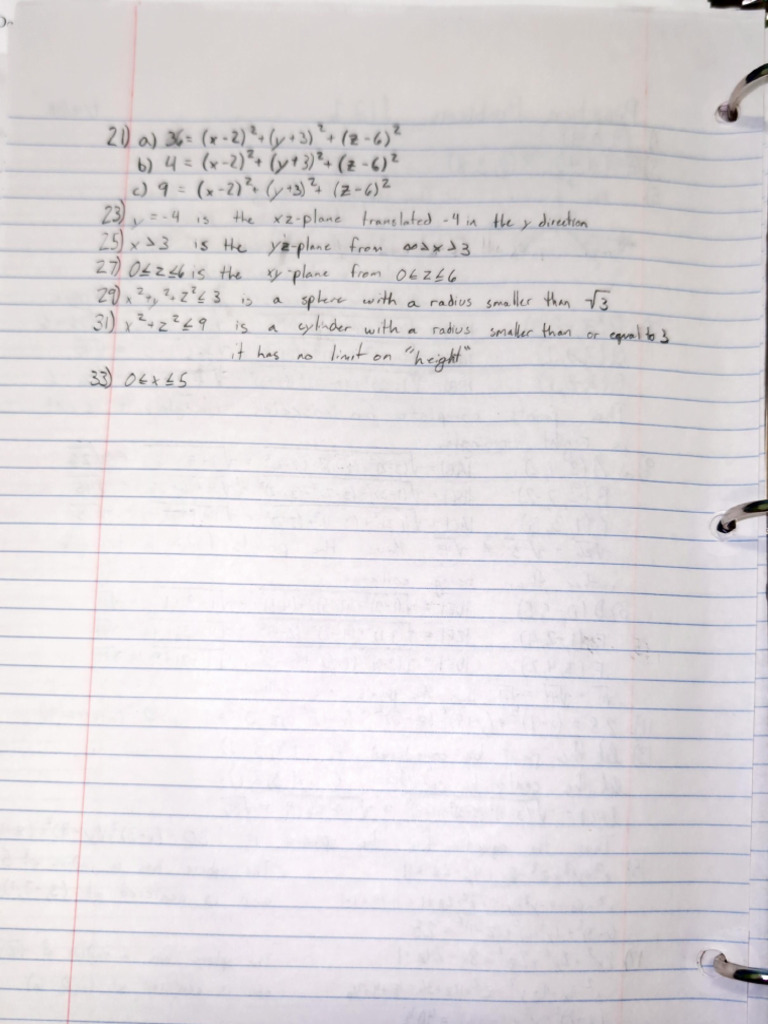 21) a) 36 = (x-2)² + (y+3)² + (z-6)²
b) 4 = (x-2)² + (y+3)² + (z-6)²
c) 9 = (x-2)² + (y+3)² + (z-6)²
23) y = -4 is the xz-plane translated -4 in the y direction
25) x > 3 is the yz-plane from ∞ > x > 3
27) 0 ≤ z ≤ 6 is the xy-plane from 0 ≤ z ≤ 6
29) x² + y² + z² ≤ 3 is a sphere with a radius smaller than √3
31) x² + z² ≤ 9 is a cylinder with a radius smaller than or equal to 3
it has no limit on "height"
33) 0 ≤ x ≤ 5